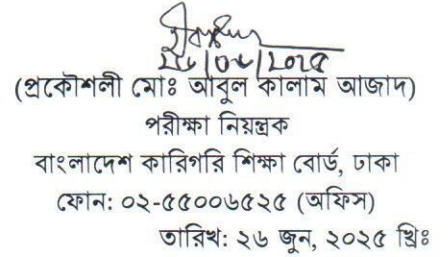 ২৬/০৬/২০২৫
(প্রকৌশলী মোঃ আবুল কালাম আজাদ)
পরীক্ষা নিয়ন্ত্রক
বাংলাদেশ কারিগরি শিক্ষা বোর্ড, ঢাকা
ফোন: ০২-৫৫০০৬৫২৫ (অফিস)
তারিখ: ২৬ জুন, ২০২৫ খ্রিঃ